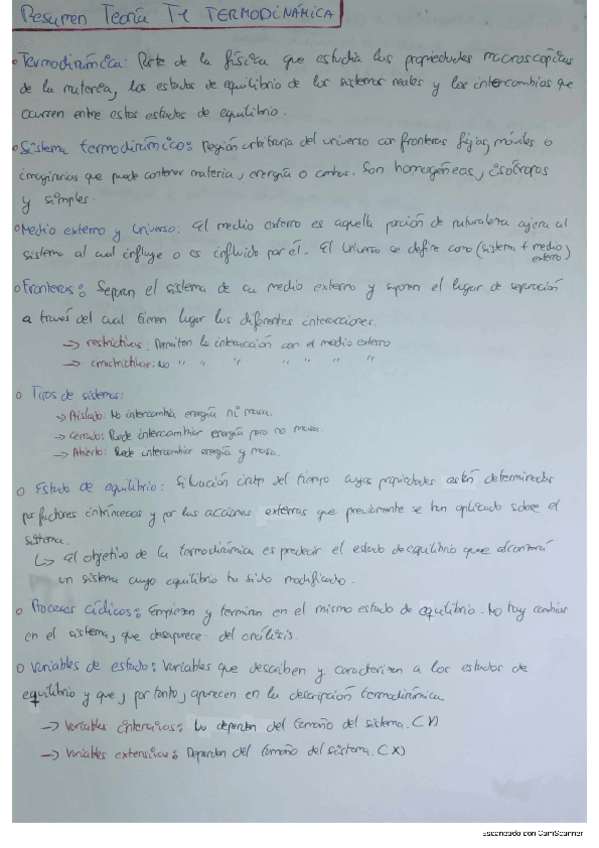 Resumen Teoría T1 TERMODINÁMICA
Termodinámica: Parte de la física que estudia las propiedades macroscópicas
de la materia, los estados de equilibrio de los sistemas reales y los intercambios que
ocurren entre estos estados de equilibrio.
Sistema termodinámico: Región arbitraria del universo con fronteras fijas, móviles o
imaginarias que puede contener materia, energía o ambas. Son homogéneas, isótropos
y simples.
Medio externo y Universo: El medio externo es aquella porción de naturaleza ajena al
sistema al cual influye o es influido por él. El Universo se define como (sistema + medio
externo)
Fronteras: Separan el sistema de su medio externo y suponen el lugar de separación
a través del cual tienen lugar las diferentes interacciones.
→ restrictivas: Permiten la interacción con el medio externo
→ : No " " " " " " "
Tipos de sistemas:
→ Aislado: No intercambia energía ni masa.
→ Cerrado: Puede intercambiar energía pero no masa.
→ Abierto: Puede intercambiar energía y masa.
Estado de equilibrio: Situación indep del tiempo cuyas propiedades están determinadas
por factores intrínsecos y por las acciones externas que previamente se han aplicado sobre el
sistema.
↳ El objetivo de la termodinámica es predecir el estado de equilibrio que alcanzará
un sistema cuyo equilibrio ha sido modificado.
Procesos cíclicos: Empiezan y terminan en el mismo estado de equilibrio. No hay cambios
en el sistema, que desaparece del análisis.
Variables de estado: Variables que describen y caracterizan a los estados de
equilibrio y que, por tanto, aparecen en la descripción termodinámica
→ Variables intensivas: No dependen del tamaño del sistema. (Y)
→ Variables extensivas: Dependen del tamaño del sistema. (X)
Escaneado con CamScanner